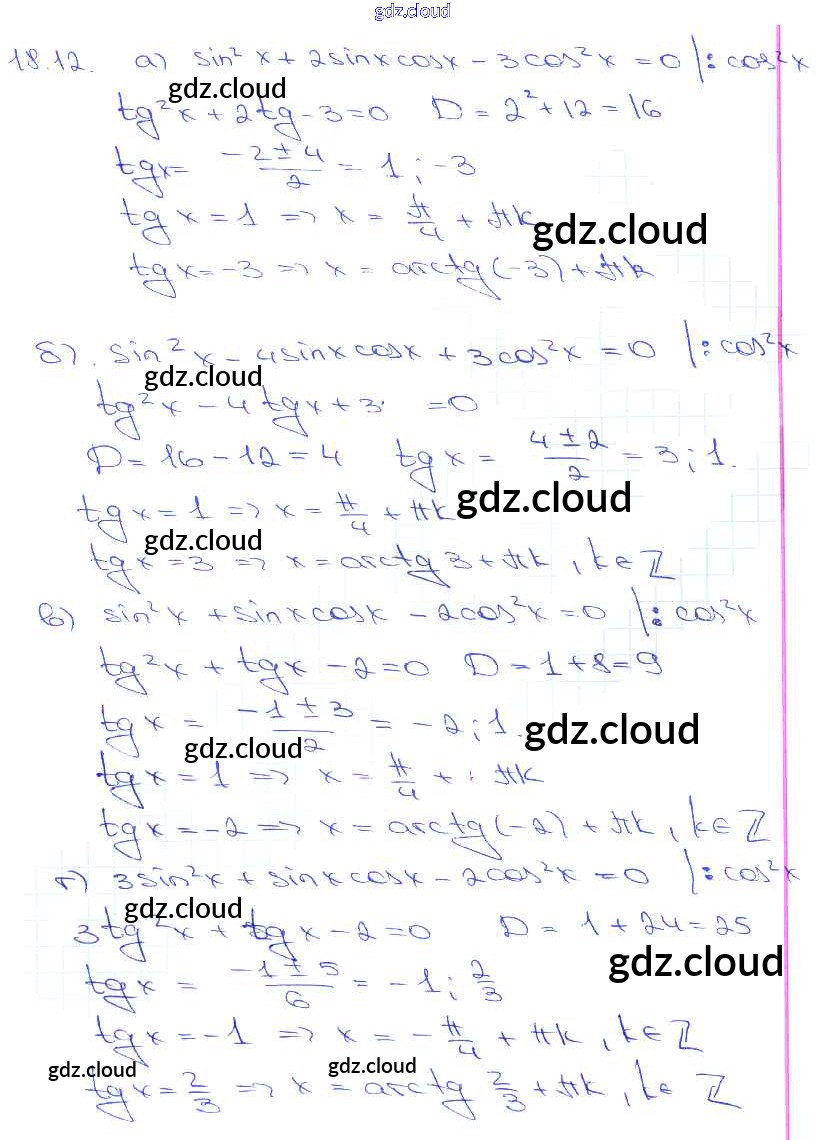 gdz.cloud
18.12. а) sin²x + 2sinxcosx - 3cos²x = 0 |: cos²x
gdz.cloud
tg²x + 2tg - 3 = 0 D = 2² + 12 = 16
tgx = (-2 ± 4)/2 = 1 ; -3
tgx = 1 => x = π/4 + πk
gdz.cloud
tgx = -3 => x = arctg(-3) + πk
б). sin²x - 4sinxcosx + 3cos²x = 0 |: cos²x
gdz.cloud
tg²x - 4tgx + 3 = 0
D = 16 - 12 = 4 tgx = (4 ± 2)/2 = 3 ; 1.
tgx = 1 => x = π/4 + πk
gdz.cloud
gdz.cloud
tgx = 3 => x = arctg3 + πk, k∈ℤ
в) sin²x + sinxcosx - 2cos²x = 0 |: cos²x
tg²x + tgx - 2 = 0 D = 1 + 8 = 9
tgx = (-1 ± 3)/2 = -2 ; 1.
gdz.cloud
gdz.cloud
tgx = 1 => x = π/4 + πk
tgx = -2 => x = arctg(-2) + πk, k∈ℤ
г) 3sin²x + sinxcosx - 2cos²x = 0 |: cos²x
gdz.cloud
3tg²x + tgx - 2 = 0 D = 1 + 24 = 25
gdz.cloud
tgx = (-1 ± 5)/6 = -1 ; 2/3
tgx = -1 => x = -π/4 + πk, k∈ℤ
gdz.cloud gdz.cloud
tgx = 2/3 => x = arctg 2/3 + πk, k∈ℤ